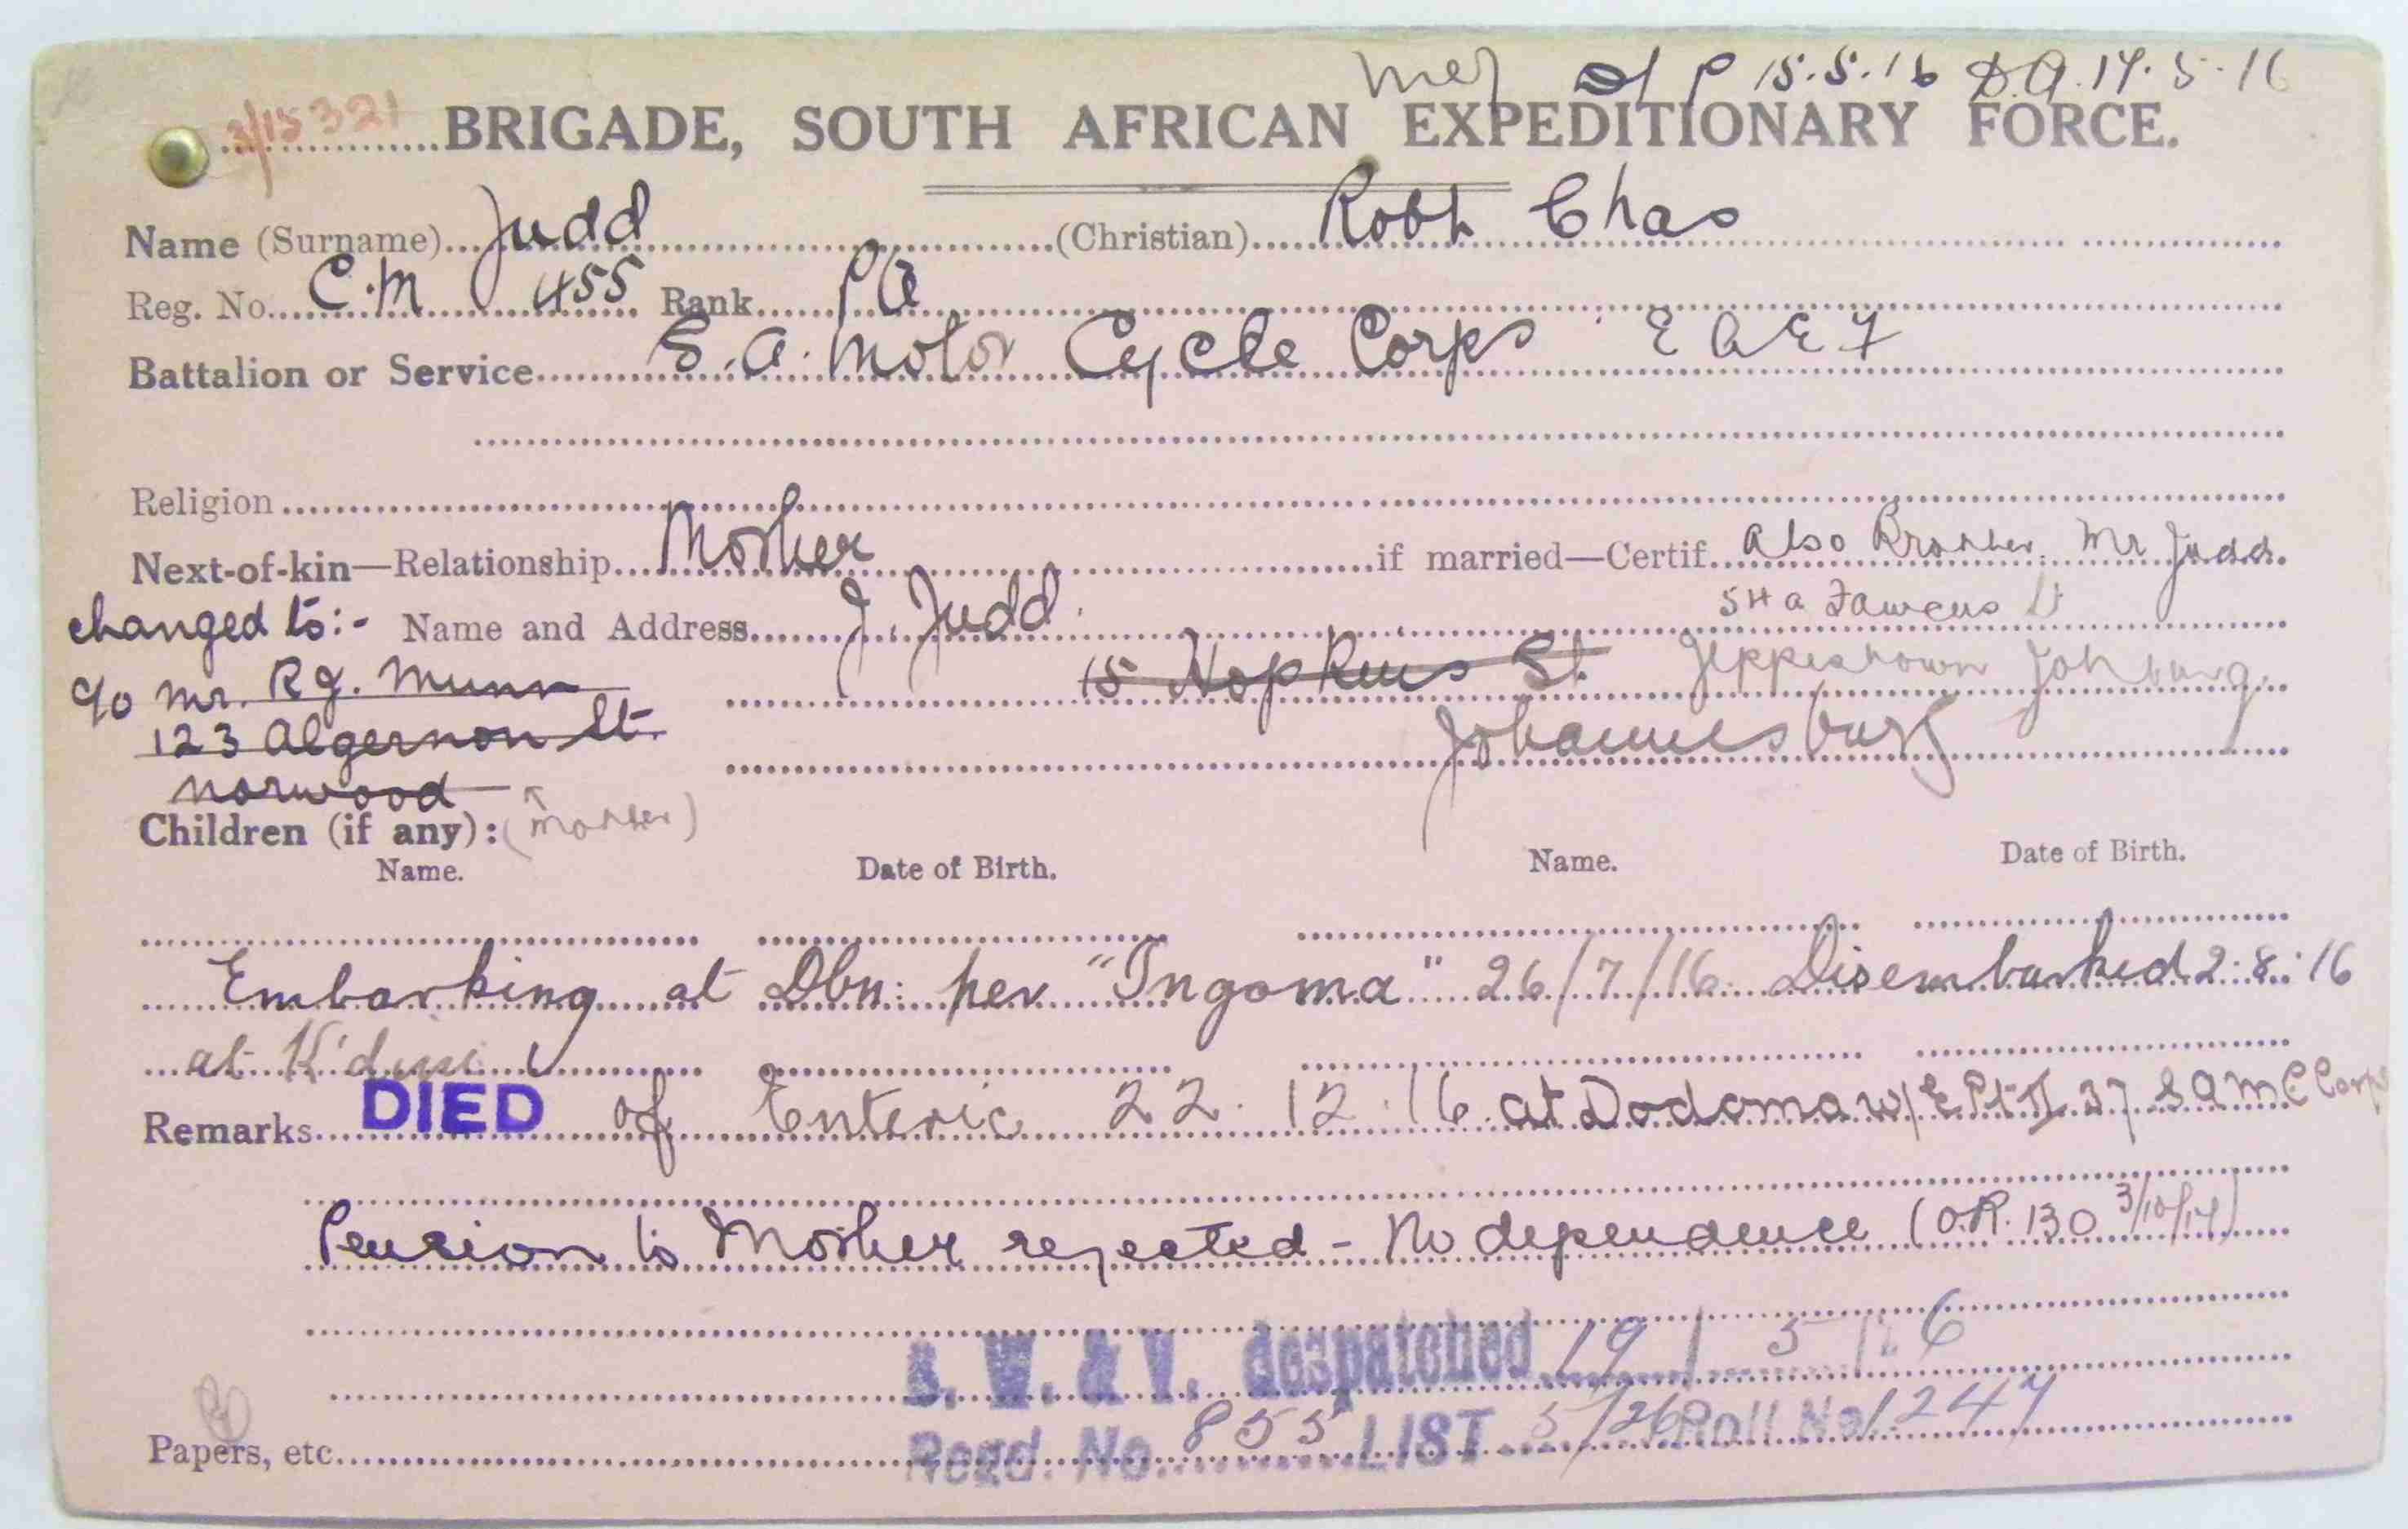 D P 15.5.16 D.A. 17.5.16
3/15321 BRIGADE, SOUTH AFRICAN EXPEDITIONARY FORCE.
Name (Surname) Judd (Christian) Robt Chas
Reg. No. C.M 455 Rank Pte
Battalion or Service S.A. Motor Cycle Corps E A E F
Religion
Next-of-kin—Relationship Mother if married—Certif. Also Brother. Mr Judd.
changed to:- Name and Address J. Judd. 54a Fawcus St
c/o Mr. R J. Munn 15 Hopkins St Jeppestown Johburg.
123 Algernon St. Johannesburg
Norwood
Children (if any): (Mother)
Name. Date of Birth. Name. Date of Birth.
Embarking at Dbn: per "Ingoma" 26/7/16. Disembarked 2.8.16
at K'dini
Remarks DIED of Enteric 22.12.16. at Dodoma W/E Pt II 37 S A M C Corps
Pension to Mother rejected - No dependence (O.R. 130 3/10/17)
B. W. & V. despatched 19/5/26
Papers, etc. Regd. No. 855 LIST 5/26 Roll No 1247